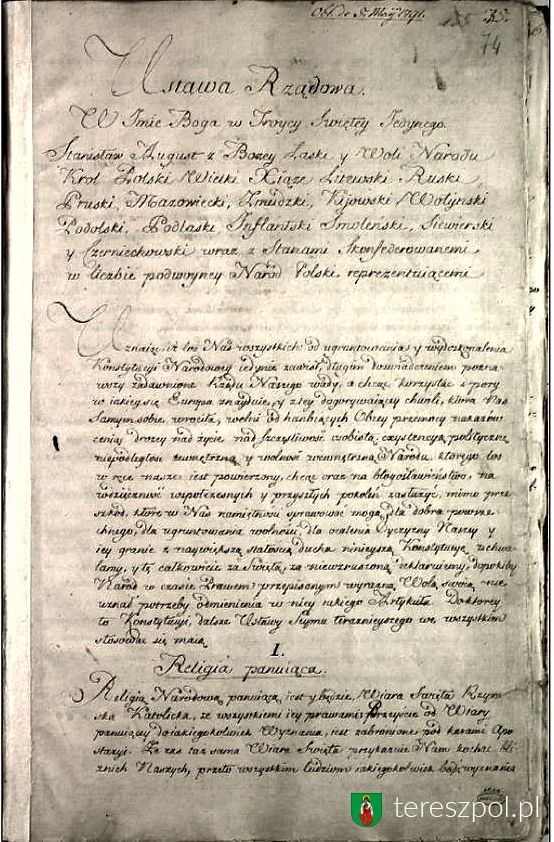 Obl. de 5. Maij 1791.
135
35.
74
Ustawa Rządowa.
W Imie Boga w Troycy Swiętey Jedynego.
Stanisław August z Bozey Łaski y Woli Narodu
Krol Polski Wielki Xiąze Litewski Ruski
Pruski, Mazowiecki, Zmudzki, Kijowski Wołyński
Podolski, Podlaski Inflantski Smoleński, Siewierski
y Czerniechowski wraz z Stanami Skonfederowanemi,
w liczbie podwoyney Naród Polski reprezentuiącemi
Uznaiąc, iż los Nas wszystkich od ugruntowania y wydoskonalenia
Konstytucyi Narodowey iedynie zawisł, długim doswiadczeniem pozna-
wszy zadawnione Rządu Naszego wady, a chcąc korzystać z pory
w iakiey się Europa znayduie, y z tey dogorywaiącey chwili, ktora Nas
samym sobie wrociła, wolni od hanbiących Obcey przemocy nakazów
ceniąc drozey nad zycie, nad szczęsliwosć osobistą, exystencyą polityczną
niepodległosc zewnętrzną y wolnosć wewnętrzną Narodu, ktorego los
w ręce nasze iest powierzony, chcąc oraz na błogosławieństwo, na
wdzięcznosć wspołczesnych y przyszłych pokoleń zasłuzyc, mimo prze-
szkód, ktore w Nas namiętnosci sprawować mogą, dla dobra powsze-
chnego, dla ugruntowania wolnosci, dla ocalenia Oyczyzny Naszey y
iey granic z naywiększą stałoscią ducha ninieyszą Konstytucyę uchwa-
lamy, y tę całkowicie za Swiętą, za niewzruszoną deklaruiemy, dopokiby
Naród w czasie Prawem przepisanym wyrazną Wolą swoią nie
uznał potrzeby odmienienia w niey iakiego Artykułu. Do ktorey
to Konstytucyi, dalsze Ustawy Seymu teraznieyszego we wszystkim
stosować się maią
I.
Religia panuiąca.
Religią Narodową panuiącą iest y będzie Wiara Swięta Rzym-
ska Katolicka, ze wszystkiemi iey prawami, Przeyscie od Wiary
panuiącey do iakiegokolwiek Wyznania, iest zabronione pod karami Apo-
stazyi. Ze zas taz sama Wiara Swięta przykazuie Nam kochac bli-
znich Naszych, przeto wszystkim ludziom iakiegokolwiek bądz wyznania
tereszpol.pl